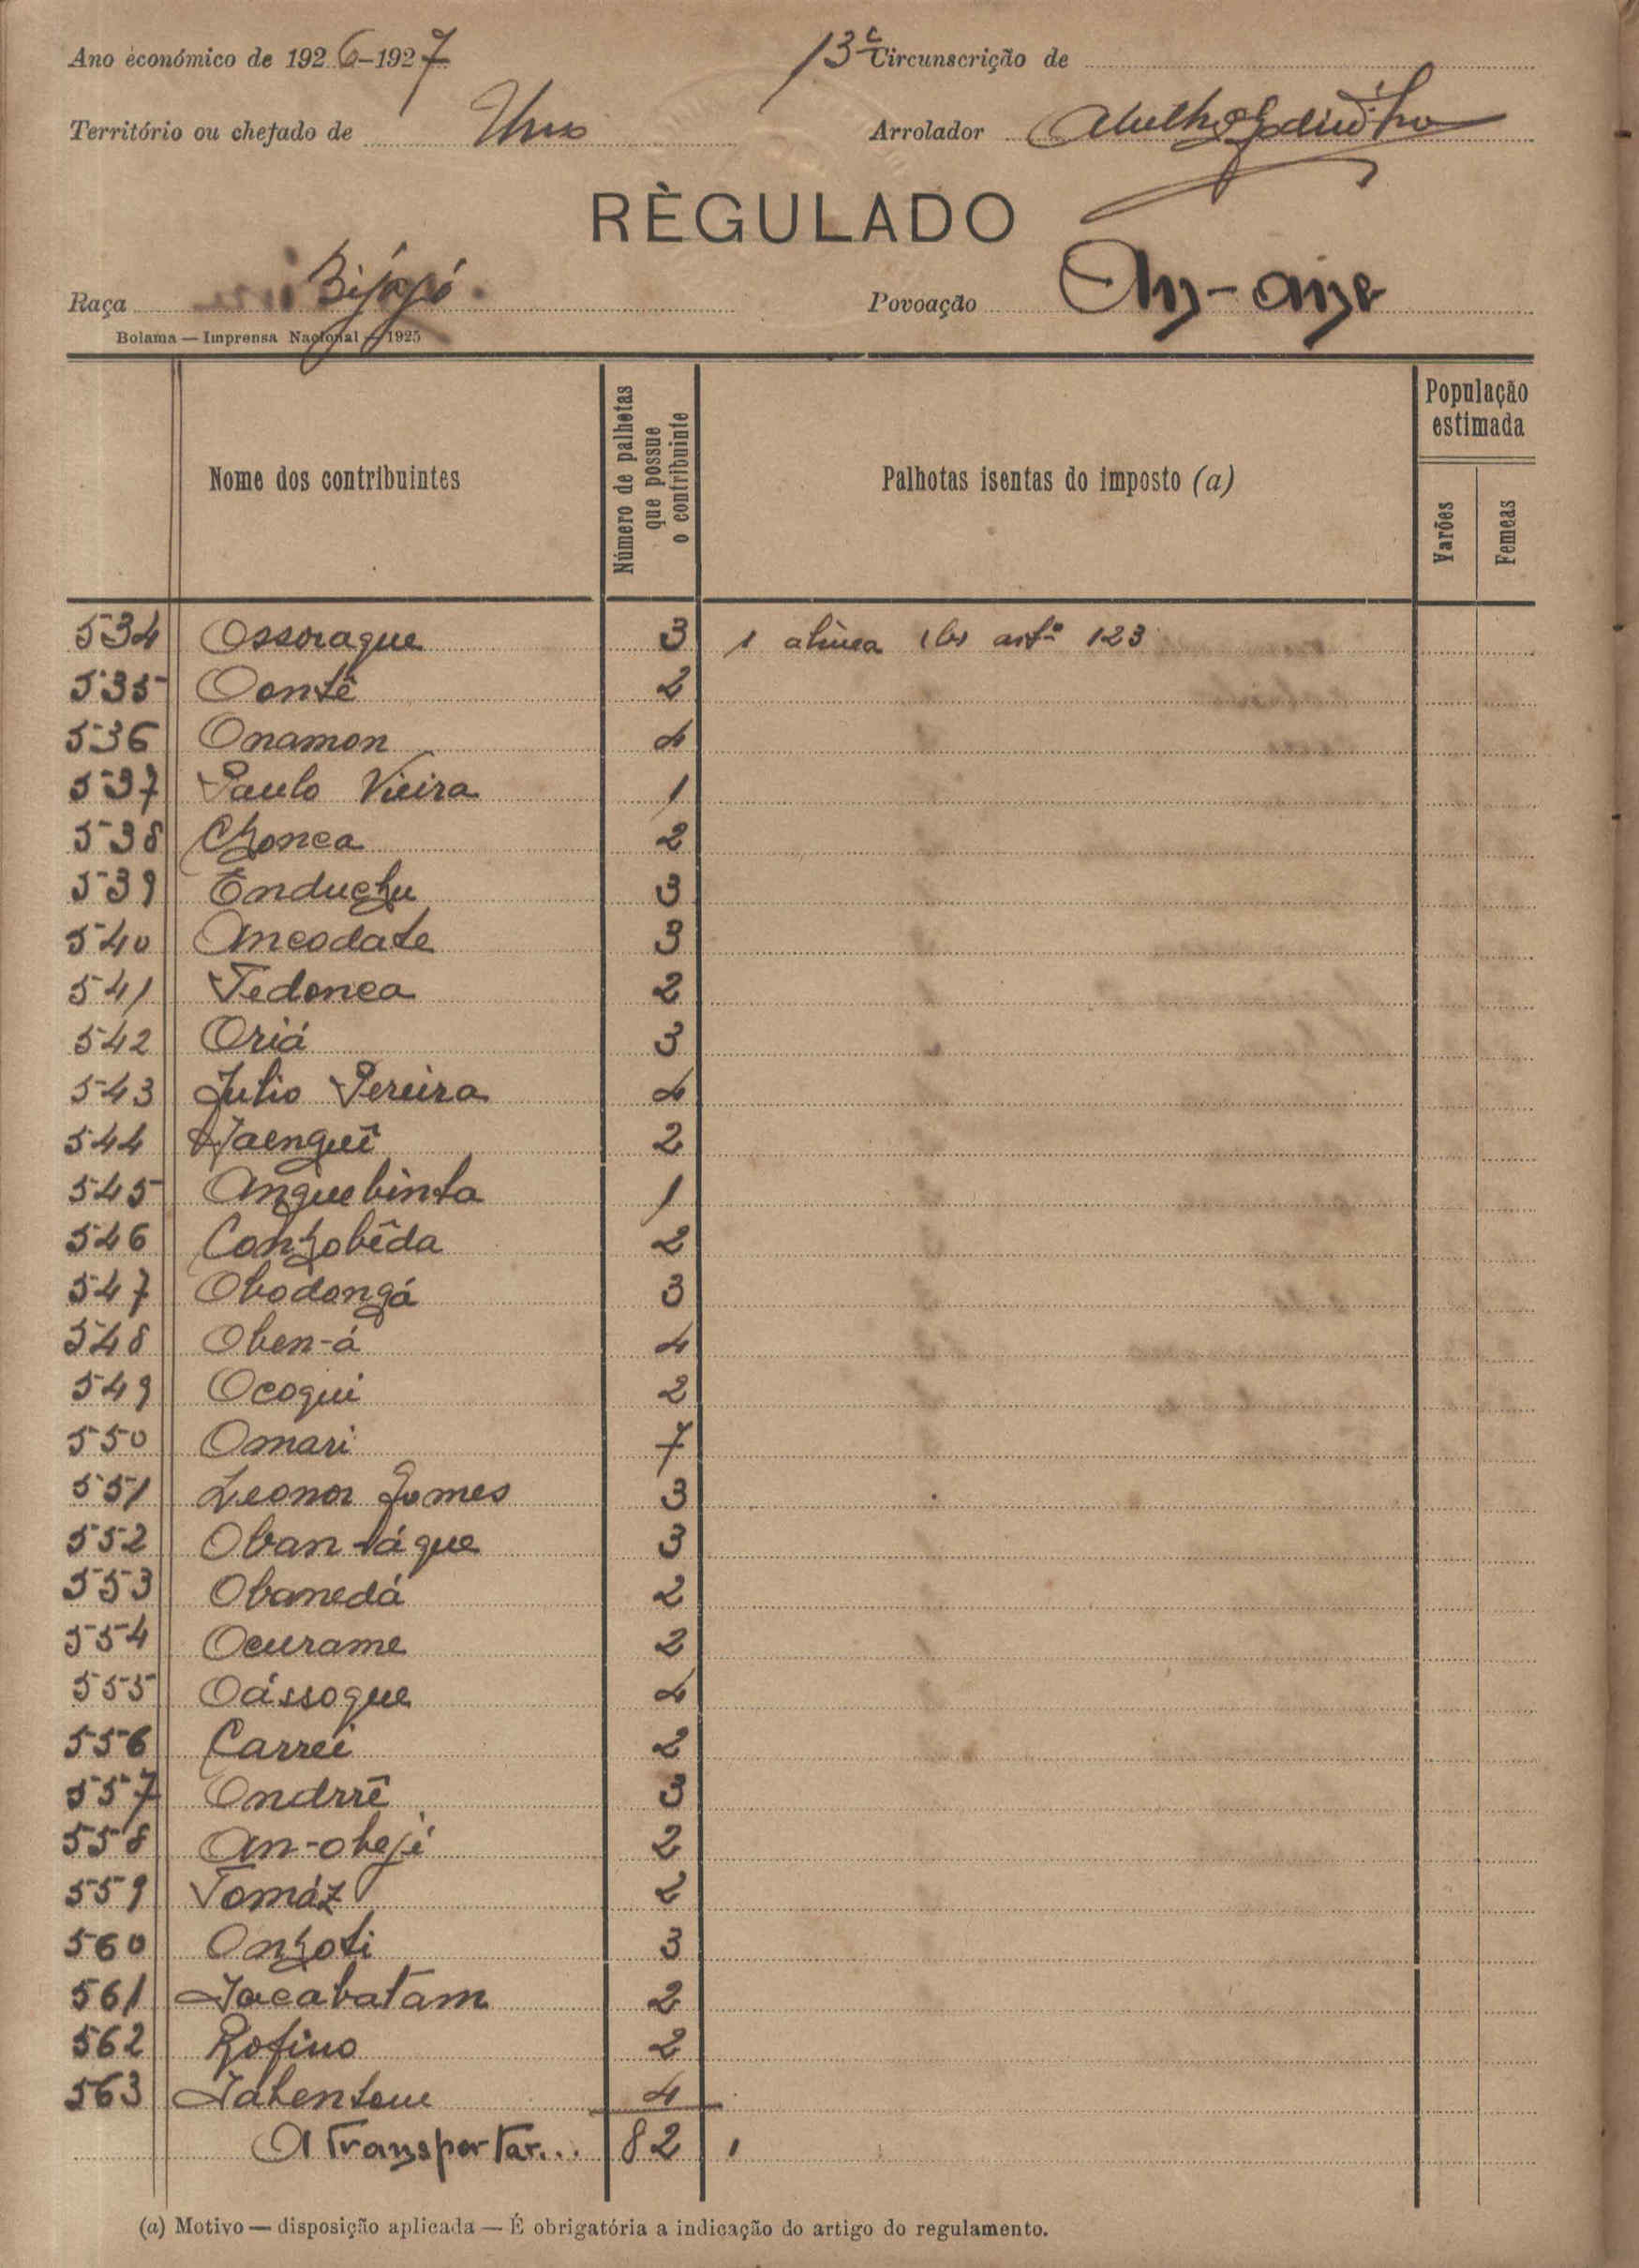 Ano económico de 1926-1927 13ª Circunscrição de
Território ou chefado de Uno Arrolador
RÈGULADO
Raça Bijagó. Povoação An-anze
Bolama — Imprensa Nacional — 1925
Nome dos contribuintes
Número de palhetas que possue o contribuinte
Palhotas isentas do imposto (a)
População estimada
Varões
Femeas
534 Ossoraque 3 1 alinea (b) artº 123
535 Oontê 2
536 Onamon 4
537 Paulo Vieira 1
538 Chonca 2
539 Enduchu 3
540 Ancodate 3
541 Tedonca 2
542 Oriá 3
543 Julio Pereira 4
544 Jaenguê 2
545 Anguebinta 1
546 Conhobêda 2
547 Obodongá 3
548 Oben-á 4
549 Ocoqui 2
550 Omari 7
551 Leonor Gomes 3
552 Oban-táque 3
553 Obanedá 2
554 Ocurame 2
555 Oássoque 4
556 Carrei 2
557 Ondrrê 3
558 An-obeji 2
559 Tomáz 2
560 Onhoti 3
561 Jacabatam 2
562 Rofino 2
563 Jabentem 4
A Transportar... 82 1
(a) Motivo — disposição aplicada — É obrigatória a indicação do artigo do regulamento.